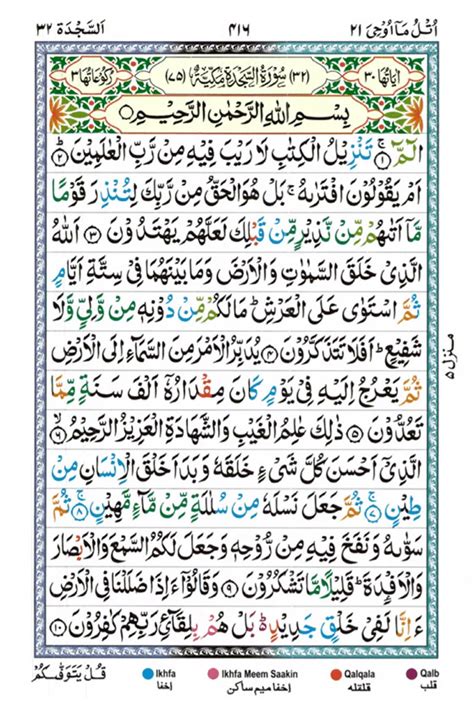 اُتْلُ مَآ اُوْحِیَ ۲۱ ۴۱۶ اَلسَّجْدَة ۳۲
اٰیَاتُهَا ۳۰ (۳۲) سُوْرَةُ السَّجْدَةِ مَكِّیَّةٌ (۷۵) رُكُوْعَاتُهَا ۳
بِسْمِ اللّٰهِ الرَّحْمٰنِ الرَّحِیْمِ
الٓمّٓ ۚ﴿۱﴾ تَنْزِیْلُ الْكِتٰبِ لَا رَیْبَ فِیْهِ مِنْ رَّبِّ الْعٰلَمِیْنَ ؕ﴿۲﴾
اَمْ یَقُوْلُوْنَ افْتَرٰىهُ ۚ بَلْ هُوَ الْحَقُّ مِنْ رَّبِّكَ لِتُنْذِرَ قَوْمًا
مَّاۤ اَتٰىهُمْ مِّنْ نَّذِیْرٍ مِّنْ قَبْلِكَ لَعَلَّهُمْ یَهْتَدُوْنَ ﴿۳﴾ اَللّٰهُ
الَّذِیْ خَلَقَ السَّمٰوٰتِ وَالْاَرْضَ وَمَا بَیْنَهُمَا فِیْ سِتَّةِ اَیَّامٍ
ثُمَّ اسْتَوٰی عَلَی الْعَرْشِ ؕ مَا لَكُمْ مِّنْ دُوْنِهٖ مِنْ وَّلِیٍّ وَّلَا
شَفِیْعٍ ؕ اَفَلَا تَتَذَكَّرُوْنَ ﴿۴﴾ یُدَبِّرُ الْاَمْرَ مِنَ السَّمَآءِ اِلَی الْاَرْضِ
ثُمَّ یَعْرُجُ اِلَیْهِ فِیْ یَوْمٍ كَانَ مِقْدَارُهٗۤ اَلْفَ سَنَةٍ مِّمَّا
تَعُدُّوْنَ ﴿۵﴾ ذٰلِكَ عٰلِمُ الْغَیْبِ وَالشَّهَادَةِ الْعَزِیْزُ الرَّحِیْمُ ۙ﴿۶﴾
الَّذِیْۤ اَحْسَنَ كُلَّ شَیْءٍ خَلَقَهٗ وَبَدَاَ خَلْقَ الْاِنْسَانِ مِنْ
طِیْنٍ ۚ﴿۷﴾ ثُمَّ جَعَلَ نَسْلَهٗ مِنْ سُلٰلَةٍ مِّنْ مَّآءٍ مَّهِیْنٍ ۚ﴿۸﴾ ثُمَّ
سَوّٰىهُ وَنَفَخَ فِیْهِ مِنْ رُّوْحِهٖ وَجَعَلَ لَكُمُ السَّمْعَ وَالْاَبْصَارَ
وَالْاَفْـِٕدَةَ ؕ قَلِیْلًا مَّا تَشْكُرُوْنَ ﴿۹﴾ وَقَالُوْۤا ءَاِذَا ضَلَلْنَا فِی الْاَرْضِ
ءَاِنَّا لَفِیْ خَلْقٍ جَدِیْدٍ ؕ۬ بَلْ هُمْ بِلِقَآئِ رَبِّهِمْ كٰفِرُوْنَ ﴿۱۰﴾
منزل ۵
Ikhfa Ikhfa Meem Saakin Qalqala Qalb
قُلْ یَتَوَفّٰىكُمْ اخفا اخفا میم ساکن قلقله قلب